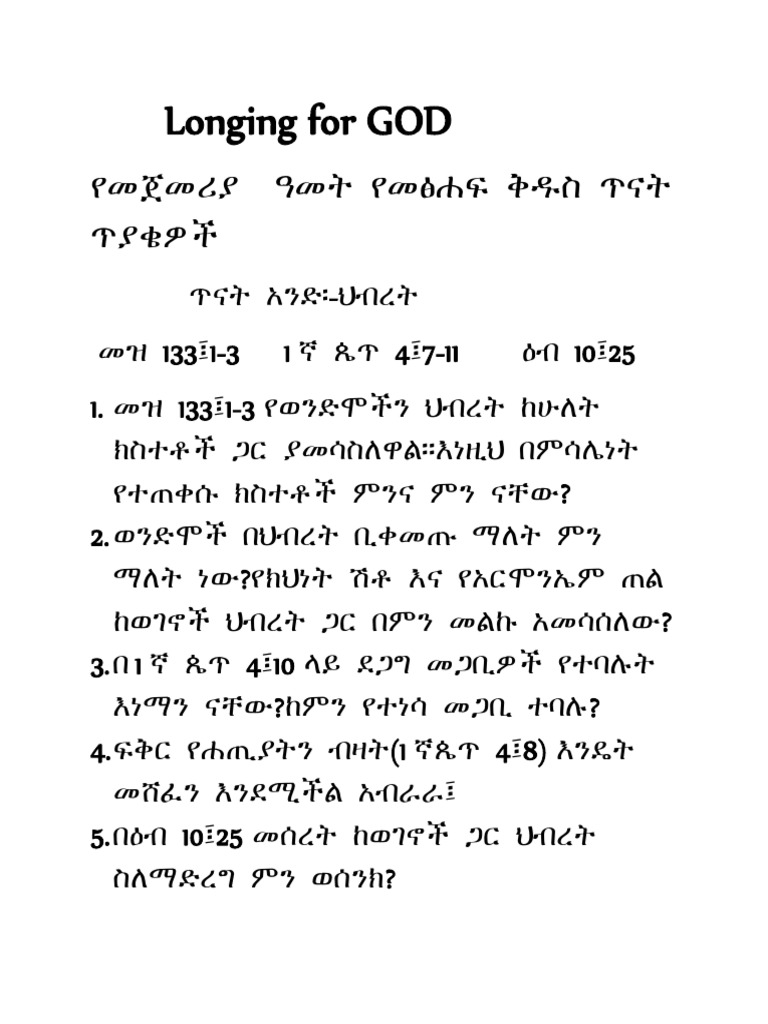 Longing for GOD
የመጀመሪያ ዓመት የመፅሐፍ ቅዱስ ጥናት
ጥያቄዎች
ጥናት አንድ፡-ህብረት
መዝ 133፤1-3 1 ኛ ጴጥ 4፤7-11 ዕብ 10፤25
1. መዝ 133፤1-3 የወንድሞችን ህብረት ከሁለት
ክስተቶች ጋር ያመሳስለዋል።እነዚህ በምሳሌነት
የተጠቀሱ ክስተቶች ምንና ምን ናቸው?
2. ወንድሞች በህብረት ቢቀመጡ ማለት ምን
ማለት ነው?የክህነት ሽቶ እና የአርሞንኤም ጠል
ከወገኖች ህብረት ጋር በምን መልኩ አመሳሰለው?
3. በ 1 ኛ ጴጥ 4፤10 ላይ ደጋግ መጋቢዎች የተባሉት
እነማን ናቸው?ከምን የተነሳ መጋቢ ተባሉ?
4. ፍቅር የሐጢያትን ብዛት(1 ኛጴጥ 4፤8) እንዴት
መሸፈን እንደሚችል አብራራ፤
5. በዕብ 10፤25 መሰረት ከወገኖች ጋር ህብረት
ስለማድረግ ምን ወሰንክ?